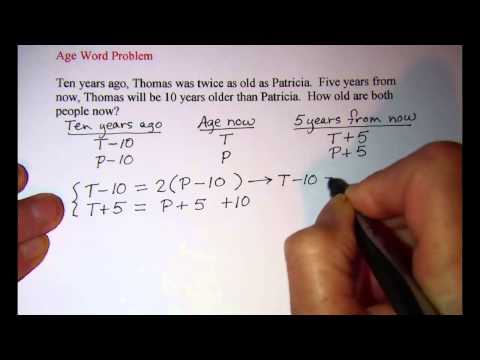 Age Word Problem
Ten years ago, Thomas was twice as old as Patricia. Five years from
now, Thomas will be 10 years older than Patricia. How old are both
people now?
Ten years ago Age now 5 years from now
T-10 T T+5
P-10 P P+5
{ T-10 = 2(P-10) → T-10 -
{ T+5 = P+5 +10